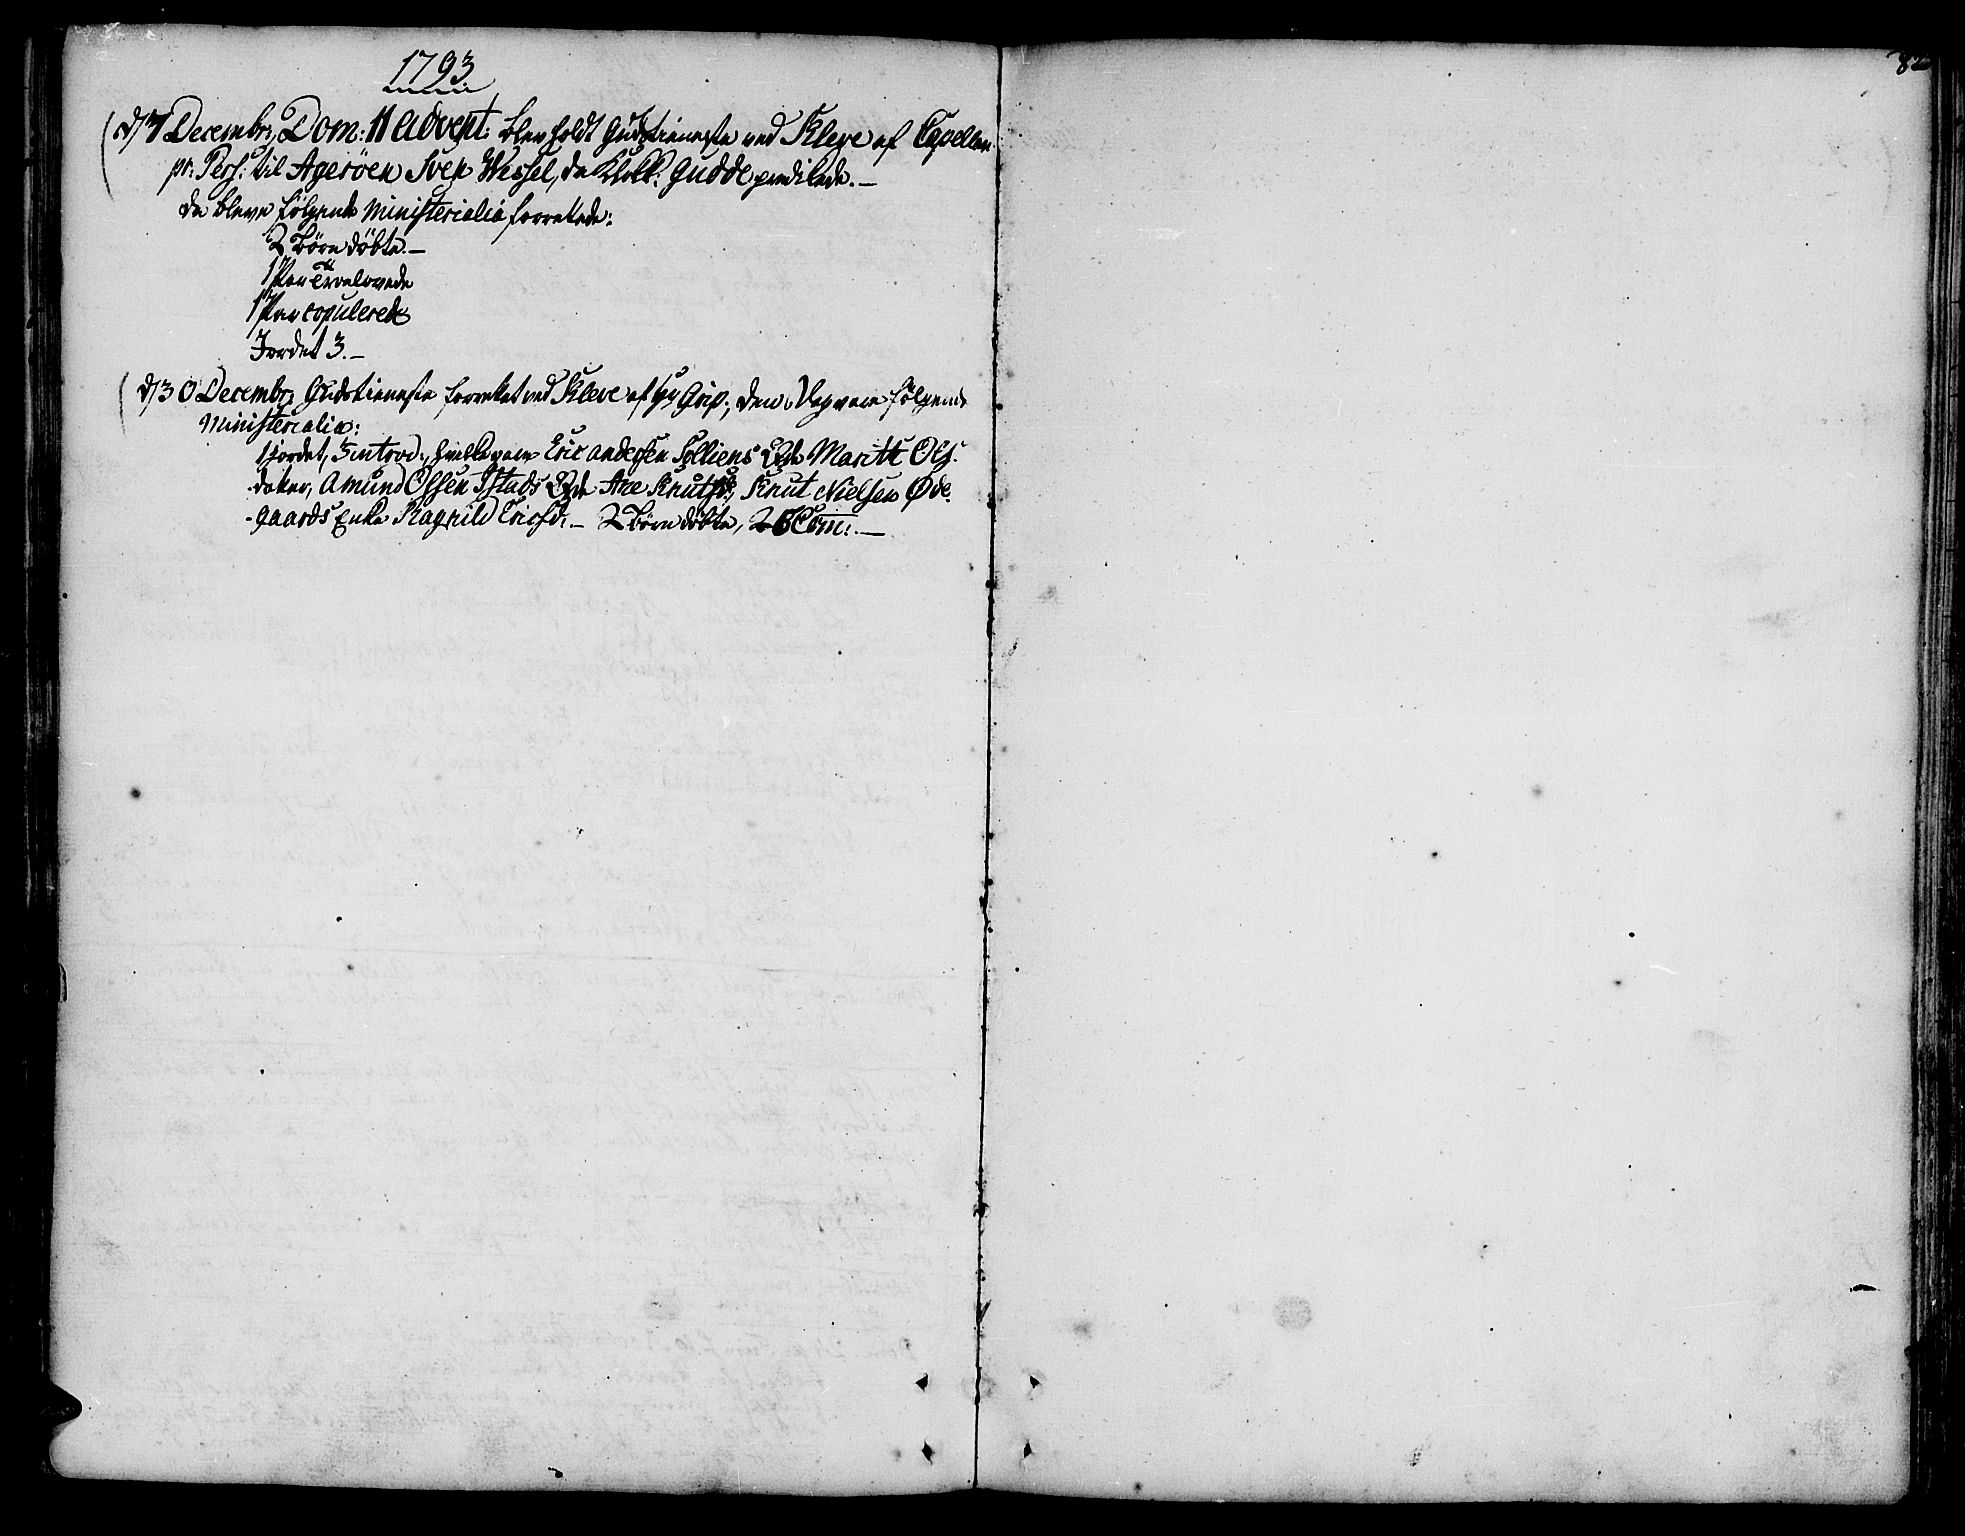 1793
d/7 Decembr: Dom: II Advent: blev holdt Gudstieneste ved Kleve af Capellan
pr: Pers: til Agerøen Sven Wessel, da Klokk: Gudde prædikede.—
da bleve følgende Ministerialia forrettede:
2 Børn døbte.—
1 Par Trolovede
1 Par copulerede
Jordet 3.—
d/30 Decembr: Gudstieneste forrettet ved Kleve af Hr Grip., den Dag vare følgende
Ministerialia:
1 jordet, 3 introd:, hvilke vare Eric Andersen Solliens Qde Marith Ols-
datter, Amund Olsen Istads Qde Ane Knutsd:, Knut Nielsen Øde-
-gaards Enke Ragnild Ericsd:— 2 Børn døbte, 26 Com:.—